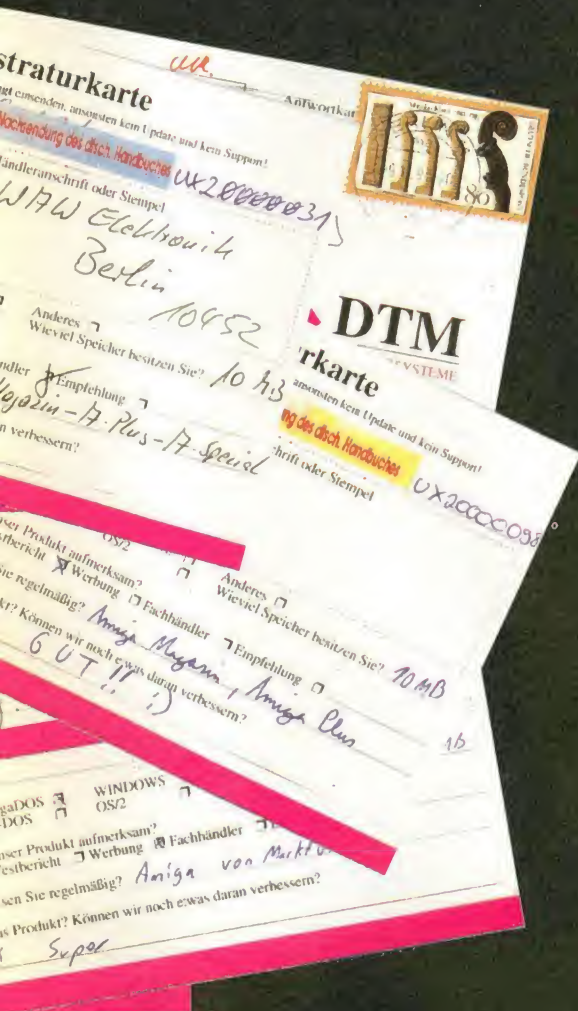 straturkarte
Antwortkar
einsenden, ansonsten kein Update und kein Support!
Nachsendung des dtsch. Handbuches UX20000031
Händleranschrift oder Stempel
WAW Elektronik
Berlin
10452
80
DTM
SYSTEME
Anderes
Wieviel Speicher besitzen Sie? 10 MB
ndler Empfehlung
Magazin-A.Plus-A.Special
n verbessern?
rkarte
ansonsten kein Update und kein Support!
ng des dtsch. Handbuches UX20000098
hrift oder Stempel
ser Produkt aufmerksam?
OS/2
Anderes
stbericht Werbung Fachhändler Empfehlung
Wieviel Speicher besitzen Sie? 10 MB
Sie regelmäßig? Amiga Magazin, Amiga Plus
kt? Können wir noch etwas daran verbessern?
GUT!! :)
16
gaDOS WINDOWS
DOS OS/2
nser Produkt aufmerksam?
estbericht Werbung Fachhändler
sen Sie regelmäßig? Amiga von Markt u
as Produkt? Können wir noch etwas daran verbessern?
Super